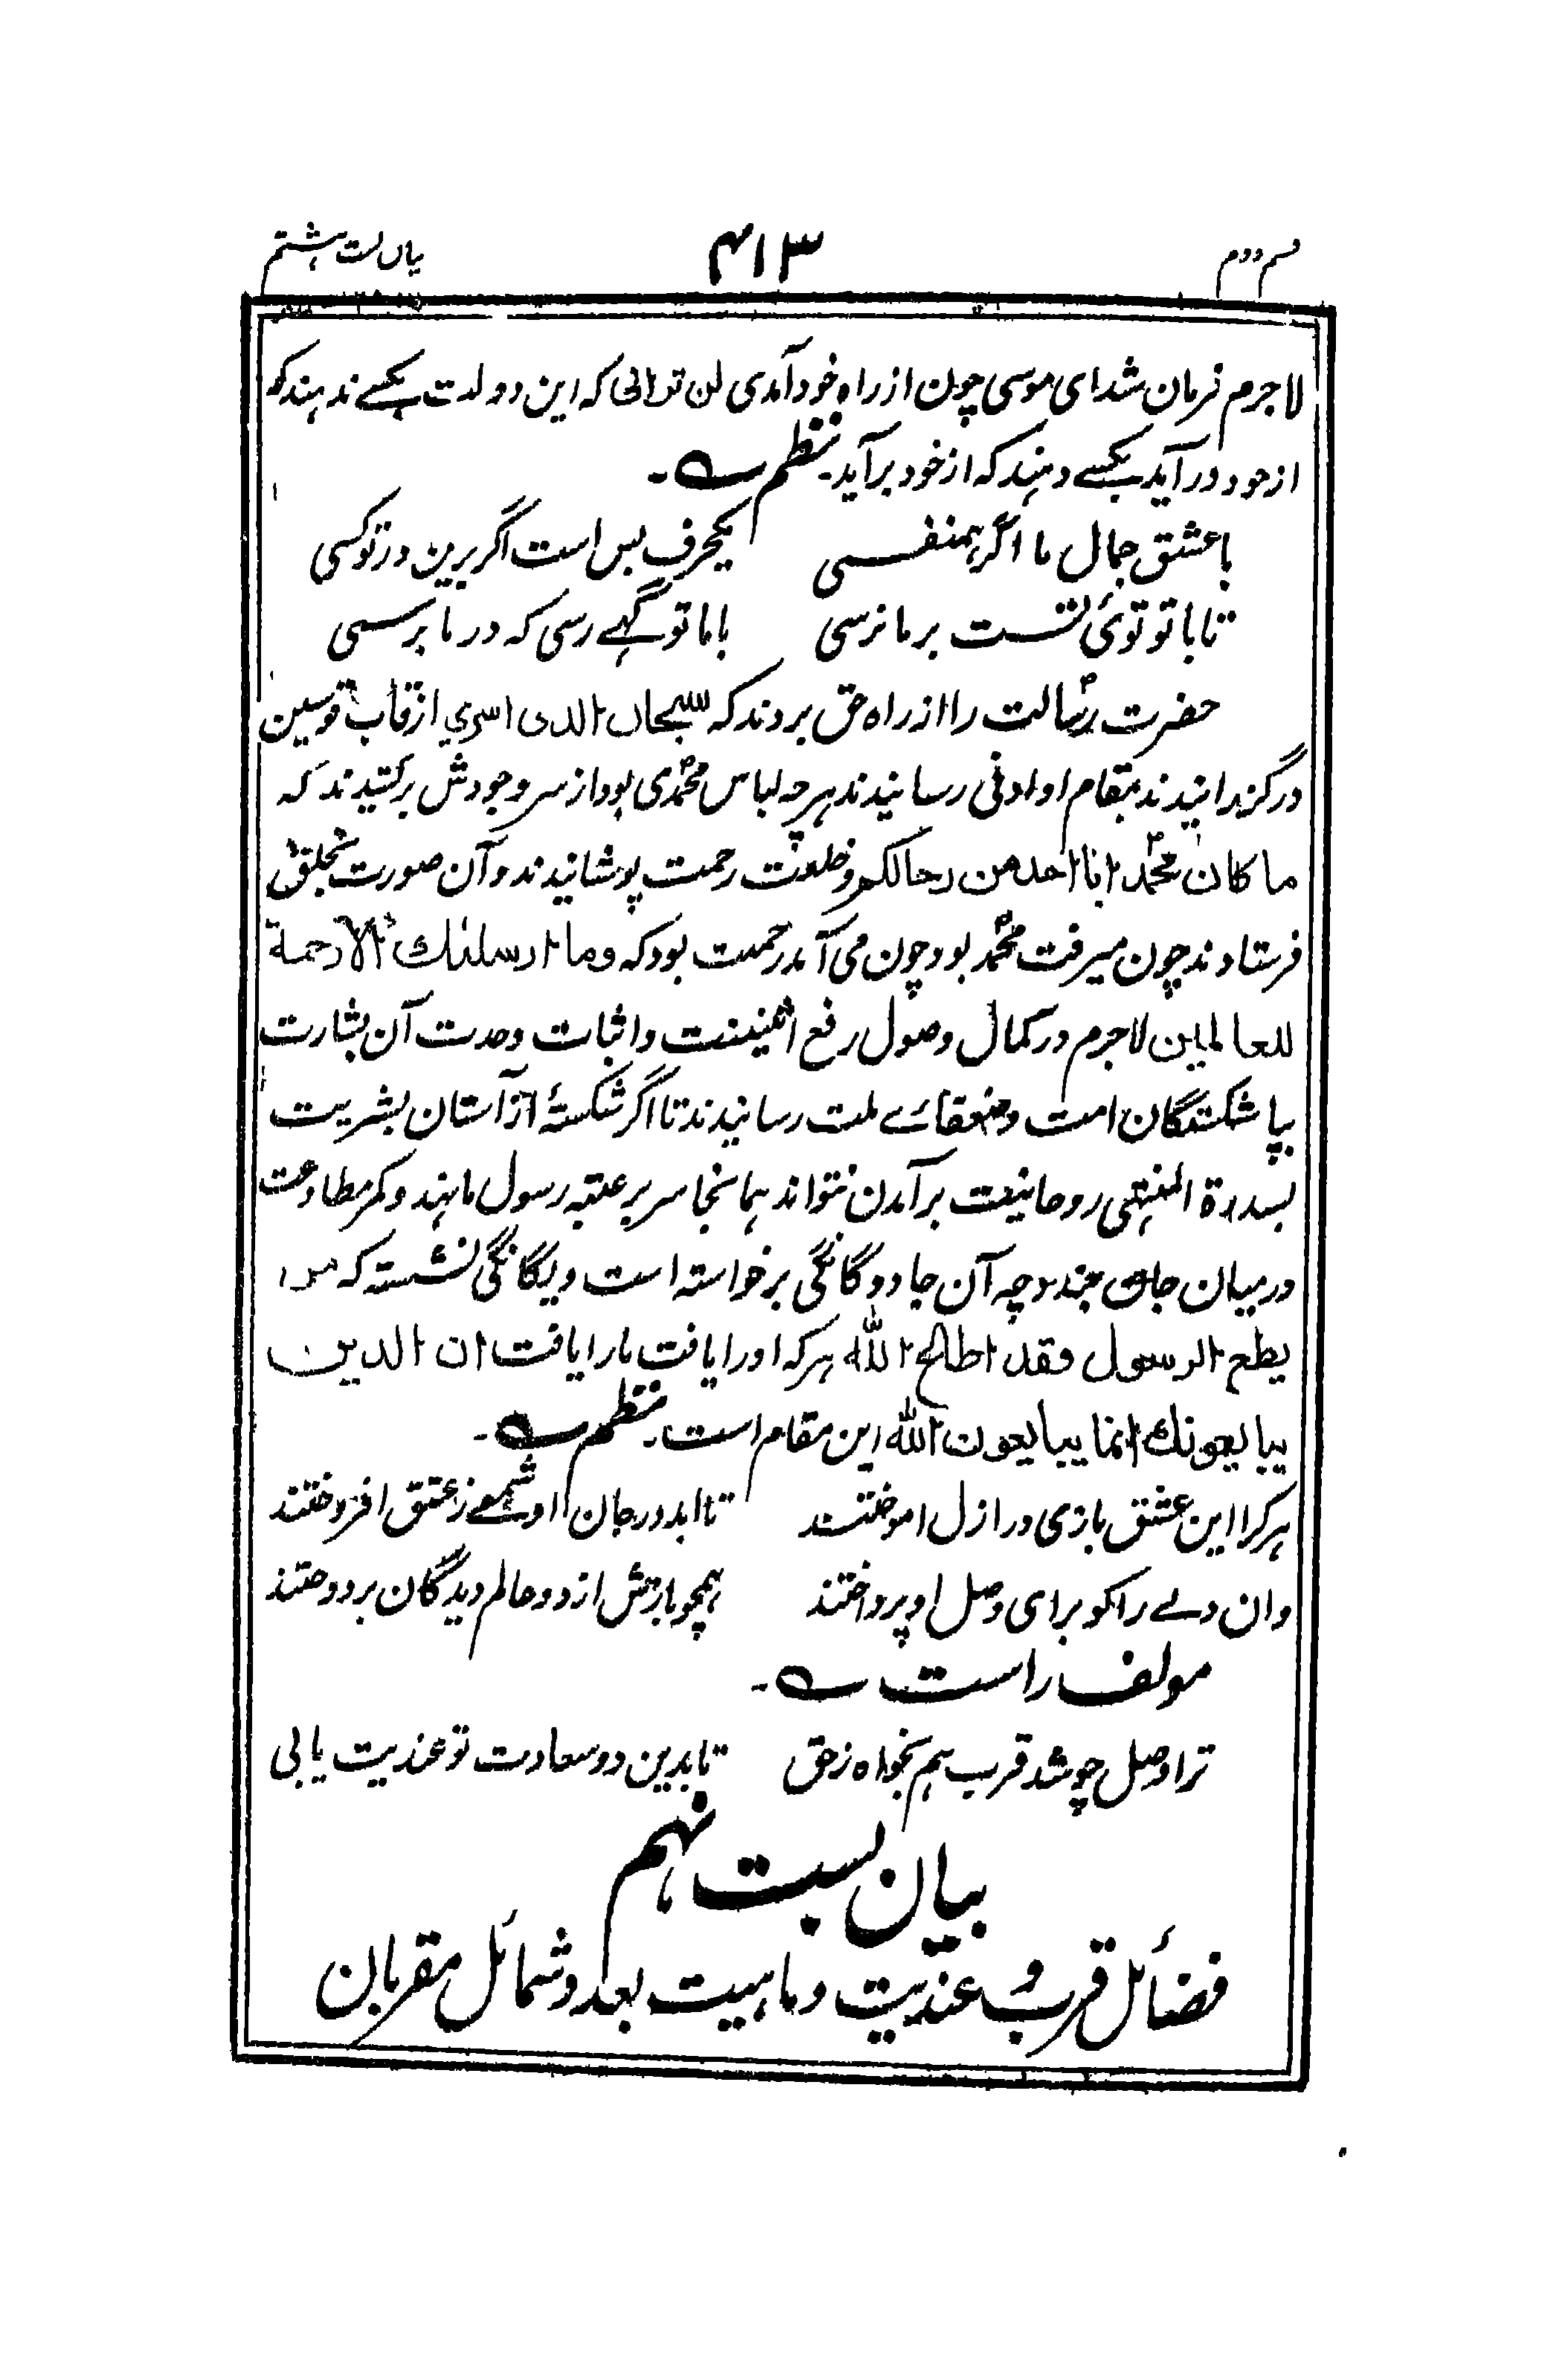 قسم دوم ۴۱۳ بیان بست ہشتم
لاجرم فرمان شد ای موسی چون از راہ خود آمدی لن ترانی کہ این دولت بکسے ندہند کہ
از خود درآید بکسے دہند کہ از خود برآید۔ نظم ؎۔
با عشق جمال ما اگر ہمنفسی یکحرف بس است اگر برین در تو کسی
تا با تو توئی تست بر ما نرسی با ما تو گہے رسی کہ در ما برسی
حضرت رسالت را از راہ حق بردند کہ سبحان الذی اسری از قاب قوسین
درگزرانیدند بمقام او ادنی رسانیدند ہرچہ لباس محمدی بود از سر وجودش برکشیدند کہ
ما کان محمد ابا احد من رجالکم و خلعت رحمت پوشانیدند و آن صورت بخلق
فرستادند چون میرفت محمد بود چون می آمد رحمت بود کہ وما ارسلنک الا رحمة
للعالمین لاجرم در کمال وصول رفع اثنینت و اثبات وحدت آن بشارت
بپا شکستگان امت و ضعفائے ملت رسانیدند تا اگر شکستۂ از آستان بشریت
بسدرة المنتہی روحانیت برآمدن نتواند ہمانجا سر بر عتبہ رسول ما نہند و کمر مطاوعت
درمیان جان بندد چہ آن جا دوگانگی برخواستہ است و یگانگی نشستہ کہ من
یطع الرسول فقد اطاع اللہ ہر کہ او را یافت ما را یافت ان الذین
یبایعونک انما یبایعون اللہ این مقام است۔ نظم ؎۔
ہر کرا این عشق بازی در ازل اموختند تا ابد در جان او شمعے ز عشق افروختند
وان دلے را کو برای وصل او پرداختند ہمچو بازش از دو عالم دیدگان بردوختند
مولف راست ؎۔
ترا وصل چو شد قرب ہم بخواہ ز حق تا بدین دو سعادت تو عندیت یابی
بیان بست نہم
فضائل قرب و عندیت و ماہیت بعد و شمائل مقربان